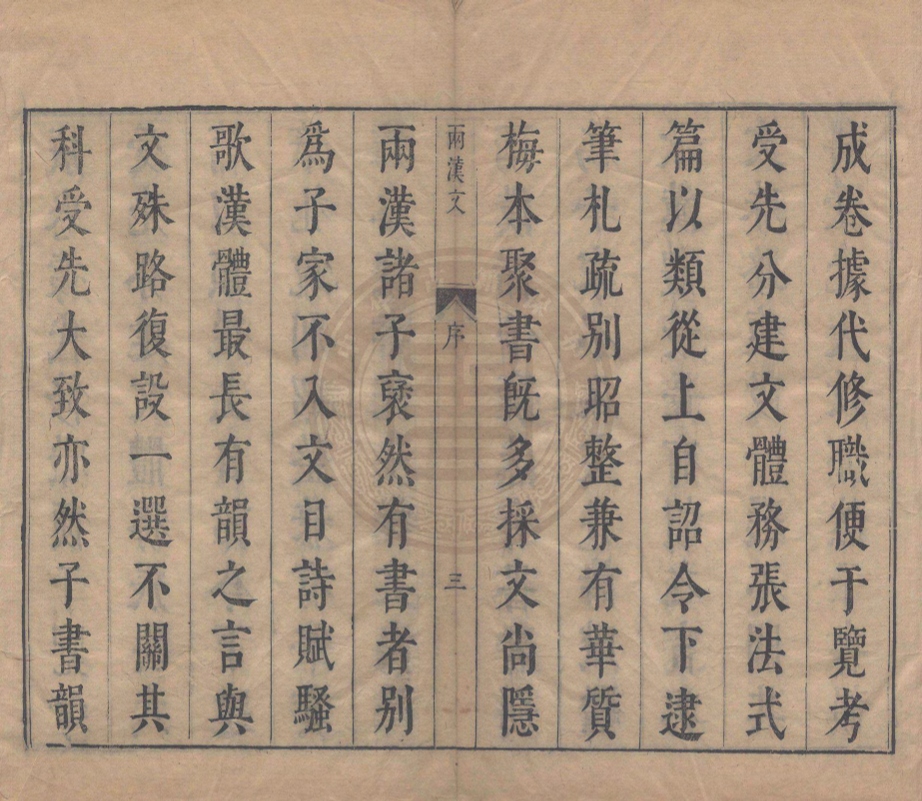 成卷據代修職便于覽考
受先分建文體務張法式
篇以類從上自詔令下逮
筆札疏別昭整兼有華質
梅本聚書既多採文尚隱
兩漢文 序 三
兩漢諸子裒然有書者別
爲子家不入文目詩賦騷
歌漢體最長有韻之言與
文殊路復設一選不關其
科受先大致亦然子書韻